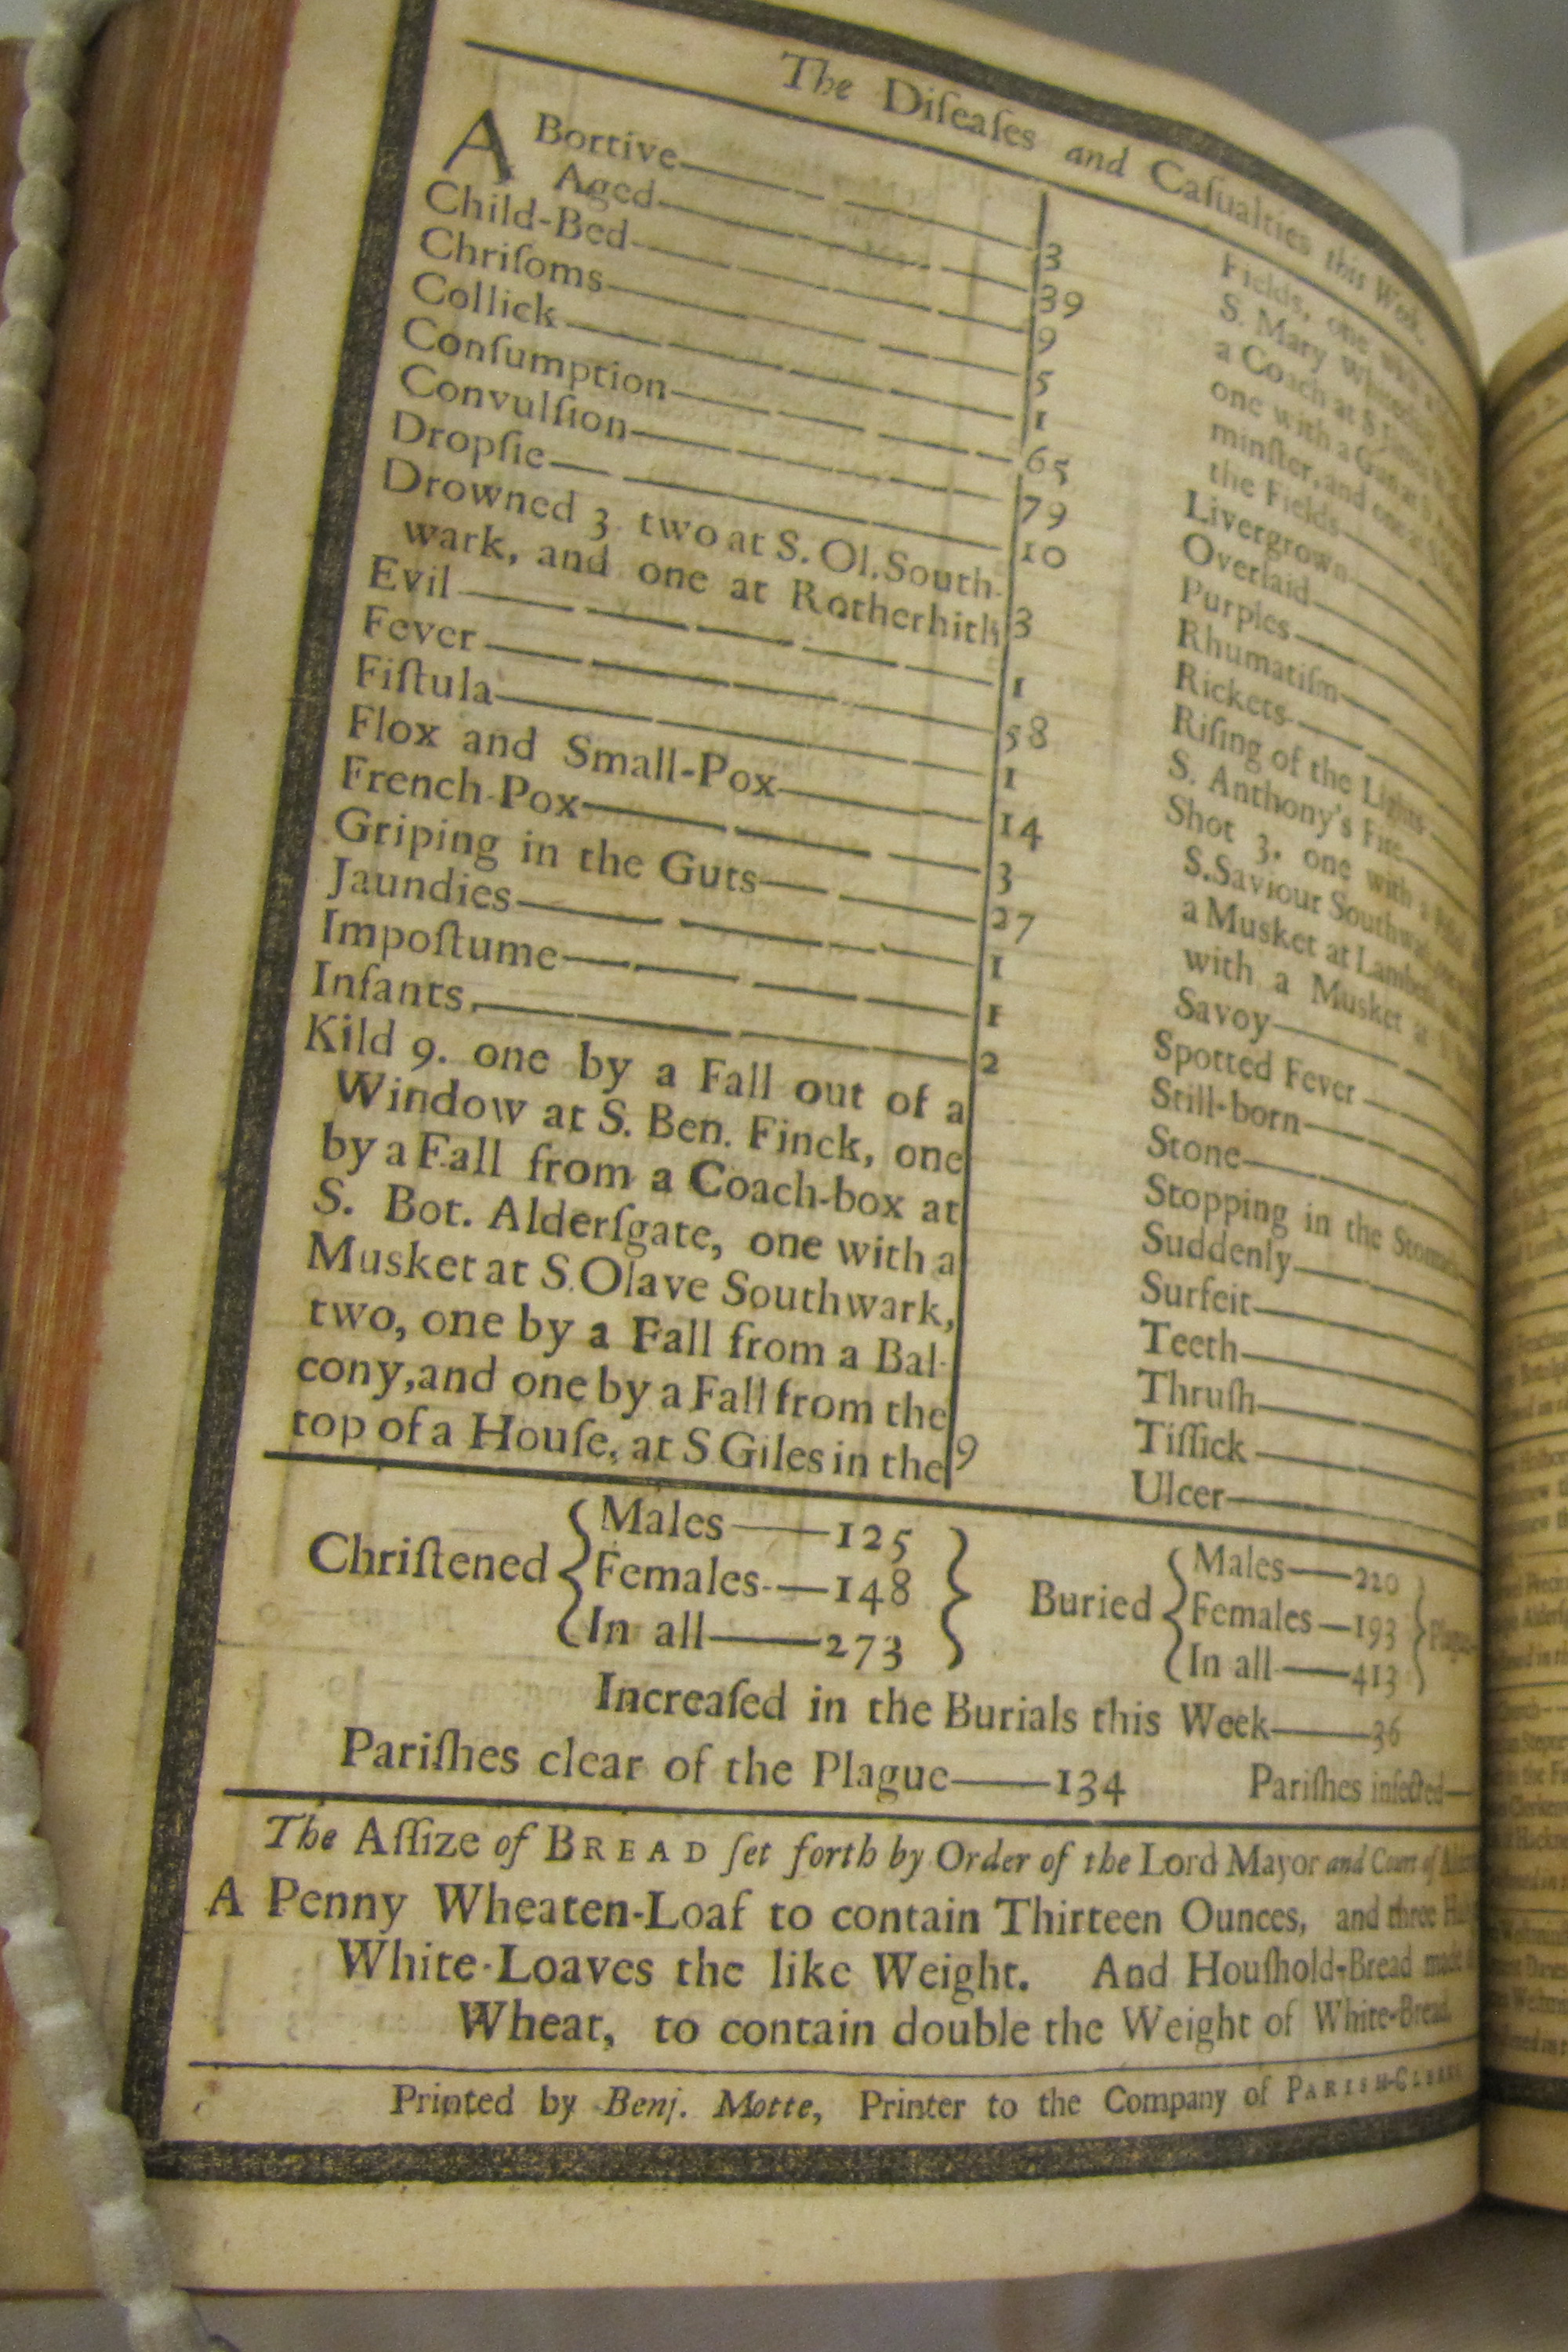 The Diſeaſes and Caſualties this Week.
ABortive 3
Aged 39
Child-Bed 9
Chriſoms 5
Collick 1
Conſumption 65
Convulſion 79
Dropſie 10
Drowned 3. two at S. Ol. South-
wark, and one at Rotherhith 3
Evil 1
Fever 58
Fiſtula 1
Flox and Small-Pox 14
French-Pox 3
Griping in the Guts 27
Jaundies 1
Impoſtume 1
Infants 2
Kild 9. one by a Fall out of a
Window at S. Ben. Finck, one
by a Fall from a Coach-box at
S. Bot. Alderſgate, one with a
Musket at S. Olave Southwark,
two, one by a Fall from a Bal-
cony, and one by a Fall from the
top of a Houſe, at S Giles in the 9
Fields, one with a
S. Mary
a Coach at S
one with a Gun at S
minſter, and one at
the Fields
Livergrown
Overlaid
Purples
Rhumatiſm
Rickets
Riſing of the Lights
S. Anthony's Fire
Shot 3. one with a
S. Saviour
a Musket at Lambeth
with a Musket at
Savoy
Spotted Fever
Still-born
Stone
Stopping in the
Suddenly
Surfeit
Teeth
Thruſh
Tiſſick
Ulcer
Chriſtened { Males — 125
Females — 148
In all — 273 }
Buried { Males — 220
Females — 193
In all — 413 }
Increaſed in the Burials this Week — 36
Pariſhes clear of the Plague — 134 Pariſhes infected —
The Aſſize of BREAD ſet forth by Order of the Lord Mayor and Court of
A Penny Wheaten-Loaf to contain Thirteen Ounces, and three
White-Loaves the like Weight. And Houſhold-Bread made
Wheat, to contain double the Weight of White-Bread.
Printed by Benj. Motte, Printer to the Company of PARISH-CLERKS